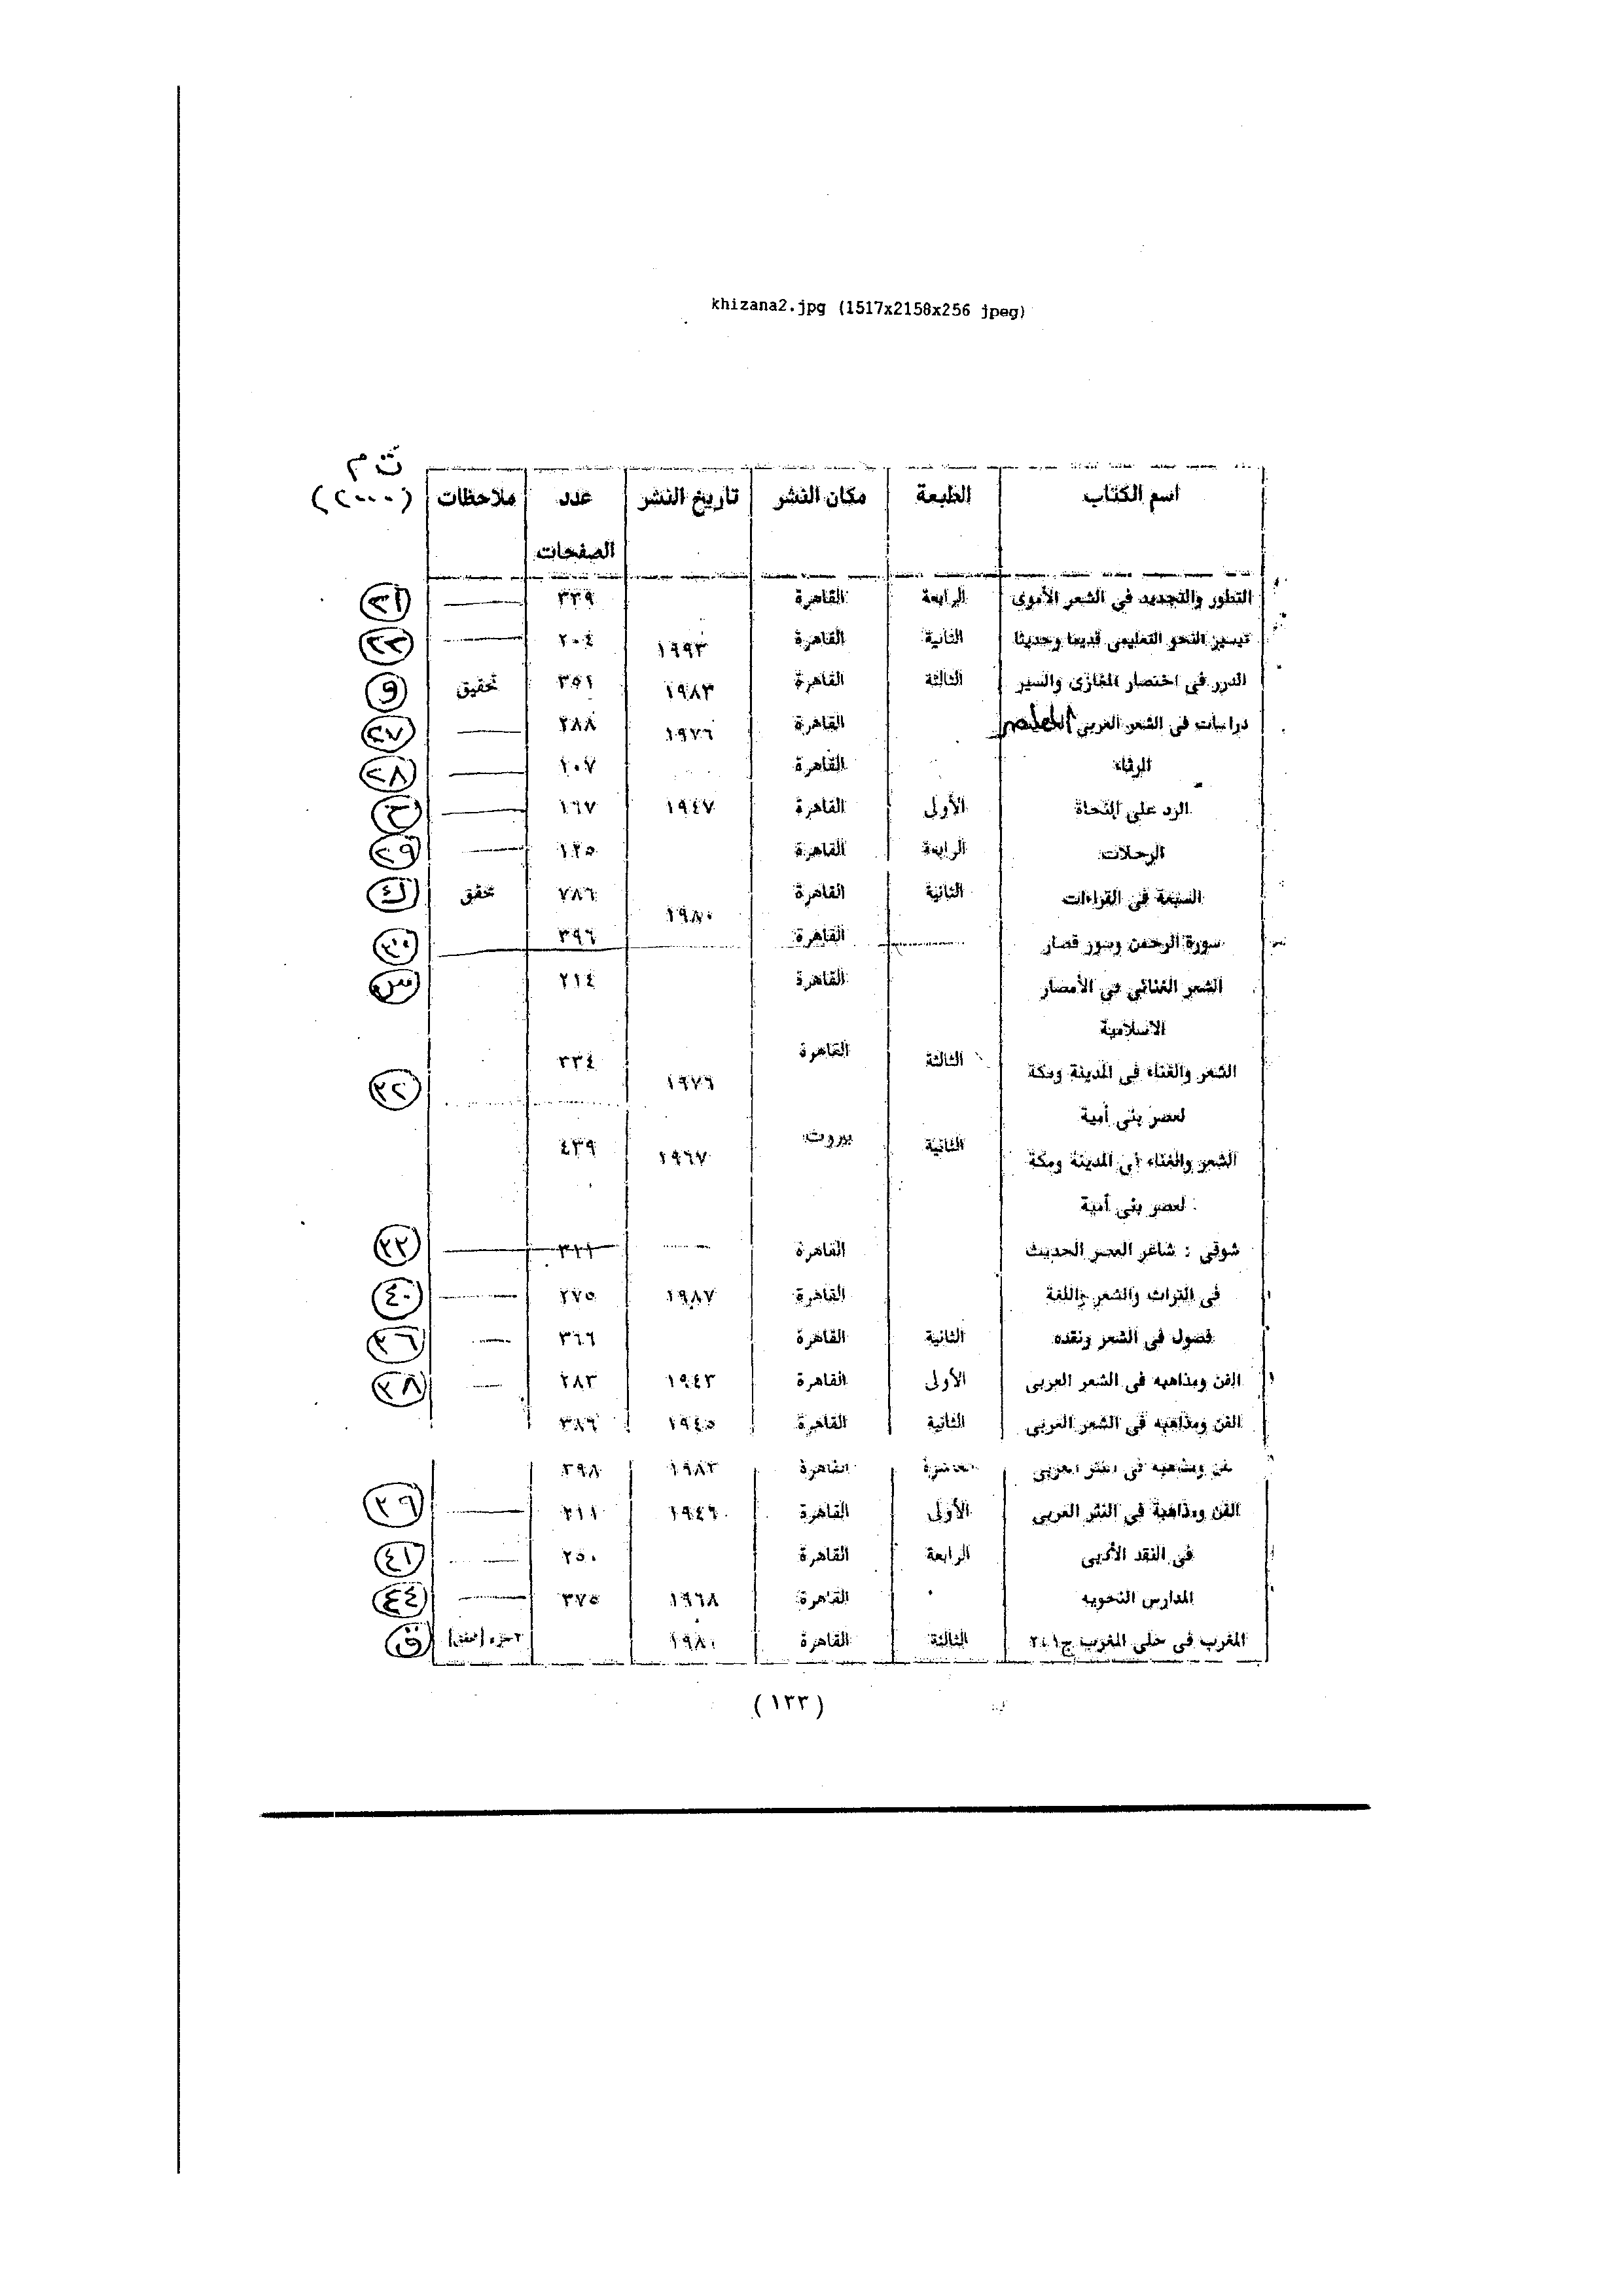 khizana2.jpg (1517x2158x256 jpeg)
ت م
اسم الكتاب | الطبعة | مكان النشر | تاريخ النشر | عدد | ملاحظات (٢٠٠٠)
الصفحات
التطور والتجديد في الشعر الأموى | الرابعة | القاهرة | ٣٣٩ | ——
تيسير النحو التعليمى قديما وحديثا | الثانية | القاهرة | ١٩٩٣ | ٢٠٤ | —— ٢٢
الدرر فى اختصار المغازى والسير | الثالثة | القاهرة | ١٩٨٣ | ٣٥١ | تحقيق و
دراسات فى الشعر العربى المعاصر | القاهرة | ١٩٧٦ | ٢٨٨ | —— ٢٧
الرثاء | القاهرة | ١٠٧ | —— ٢٨
الرد على النحاة | الأولى | القاهرة | ١٩٤٧ | ١٦٧ | ——
الرحلات | الرابعة | القاهرة | ١٢٥ | —— ٢٩
السبعة فى القراءات | الثانية | القاهرة | ١٩٨٠ | ٧٨٦ | محقق
سورة الرحمن وسور قصار | القاهرة | ٣٩٦ | —— ٣٠
الشعر الغنائى فى الأمصار | القاهرة | ٢١٤
الاسلامية
الشعر والغناء فى المدينة ومكة | الثالثة | القاهرة | ١٩٧٦ | ٣٣٤ | ٣٢
لعصر بنى أمية
الشعر والغناء فى المدينة ومكة | الثانية | بيروت | ١٩٦٧ | ٤٣٩
لعصر بنى أمية
شوقى : شاعر العصر الحديث | القاهرة | —— | ٣١١ | ——
فى التراث والشعر واللغة | القاهرة | ١٩٨٧ | ٢٧٥ | —— ٤٠
فصول فى الشعر ونقده | الثانية | القاهرة | ٣٦٦ | —— ٣٦
الفن ومذاهبه فى الشعر العربى | الأولى | القاهرة | ١٩٤٣ | ٢٨٣ | —— ٣٨
الفن ومذاهبه فى الشعر العربى | الثانية | القاهرة | ١٩٤٥ | ٣٨٦
ومذاهبه فى النثر العربى | العاشرة | القاهرة | ١٩٨٣ | ٣٩٨
الفن ومذاهبة فى النثر العربى | الأولى | القاهرة | ١٩٤٦ | ٢١١ | —— ٣٩
فى النقد الأدبى | الرابعة | القاهرة | ٢٥٠ | —— ٤١
المدارس النحويه | القاهرة | ١٩٦٨ | ٣٧٥ | —— ٤٤
المغرب فى حلى المغرب ج٢،١ | الثالثة | القاهرة | ١٩٨٠ | ٢ جزء (محقق) ق
(١٣٣)